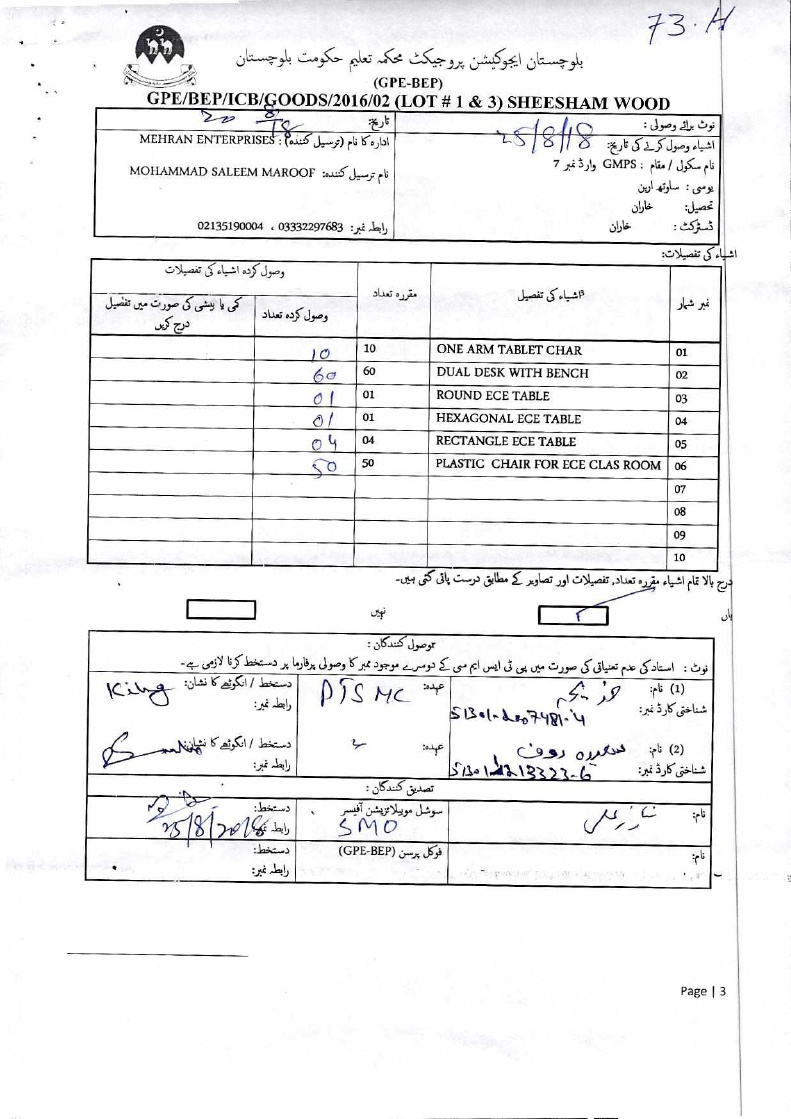 73.H
بلوچستان ایجوکیشن پروجیکٹ محکمہ تعلیم حکومت بلوچستان
(GPE-BEP)
GPE/BEP/ICB/GOODS/2016/02 (LOT # 1 & 3) SHEESHAM WOOD
نوٹ برائے وصولی :
تاریخ: 20 8 18
اشیاء وصول کرنے کی تاریخ: 25/8/18
ادارہ کا نام (ترسیل کنندہ) : MEHRAN ENTERPRISES
نام سکول / مقام : GMPS وارڈ نمبر 7
نام ترسیل کنندہ: MOHAMMAD SALEEM MAROOF
یو سی : ساوتھ اربن
تحصیل: خاران
ڈسٹرکٹ : خاران
رابطہ نمبر: 03332297683 ، 02135190004
اشیاء کی تفصیلات:
نمبر شمار اشیاء کی تفصیل مقررہ تعداد وصول کردہ اشیاء کی تفصیلات
وصول کردہ تعداد کمی یا بیشی کی صورت میں تفصیل درج کریں
10 10 ONE ARM TABLET CHAR 01
60 60 DUAL DESK WITH BENCH 02
01 01 ROUND ECE TABLE 03
01 01 HEXAGONAL ECE TABLE 04
04 04 RECTANGLE ECE TABLE 05
50 50 PLASTIC CHAIR FOR ECE CLAS ROOM 06
07
08
09
10
درج بالا تمام اشیاء مقررہ تعداد, تفصیلات اور تصاویر کے مطابق درست پائی گئی ہیں-
ہاں نہیں
وصول کنندگان :
نوٹ : استاد کی عدم تعنیاتی کی صورت میں پی ٹی ایس ایم سی کے دوسرے موجود ممبر کا وصولی پرفارما پر دستخط کرنا لازمی ہے-
(1) نام: عہدہ: PTSMC دستخط / انگوٹھے کا نشان:
شناختی کارڈ نمبر: رابطہ نمبر:
(2) نام: عہدہ: دستخط / انگوٹھے کا نشان:
شناختی کارڈ نمبر: رابطہ نمبر:
تصدیق کنندگان :
نام: سوشل موبیلائزیشن آفیسر دستخط:
SMO رابطہ نمبر: 25/8/2018
نام: فوکل پرسن (GPE-BEP) دستخط:
رابطہ نمبر:
Page | 3